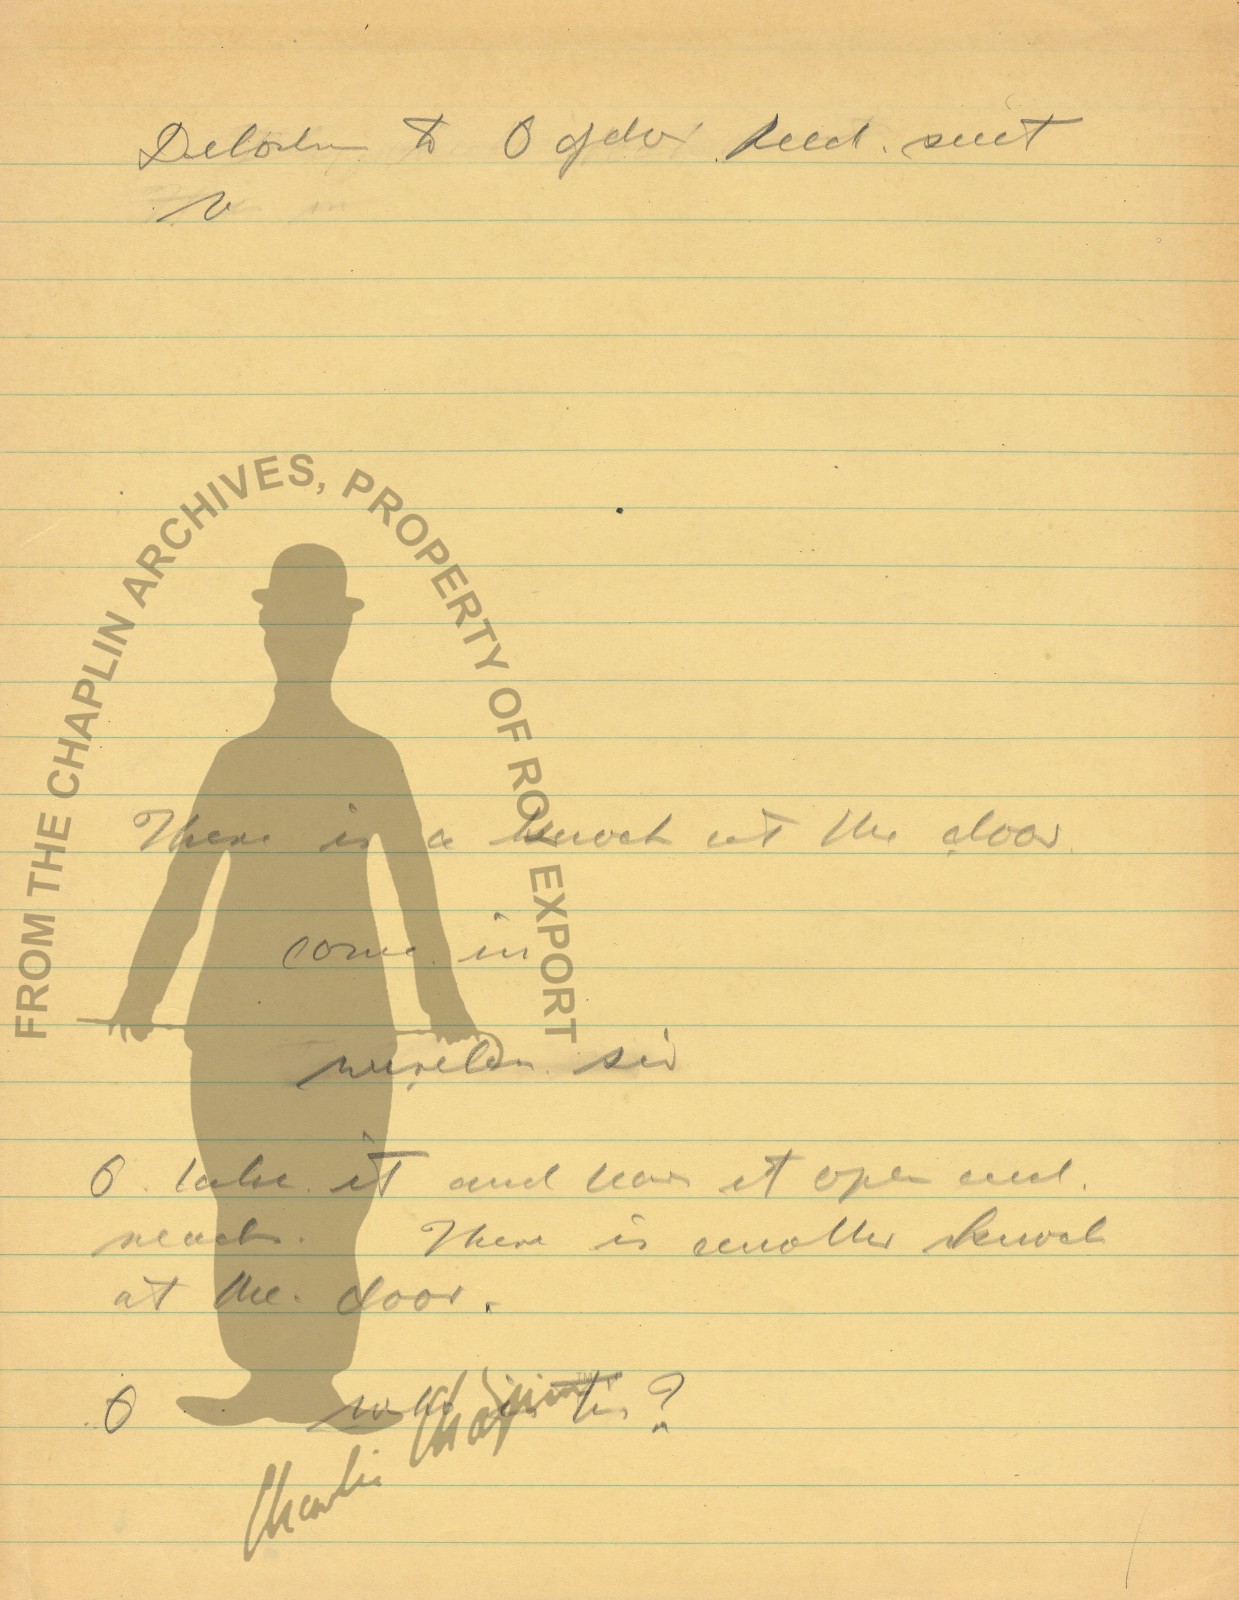 to Ogden
There is a knock at the door.
come in
sir
O. take it and tears it open and
reads. There is another knock
at the door.
O who is it?
FROM THE CHAPLIN ARCHIVES, PROPERTY OF ROY EXPORT
Charlie Chaplin